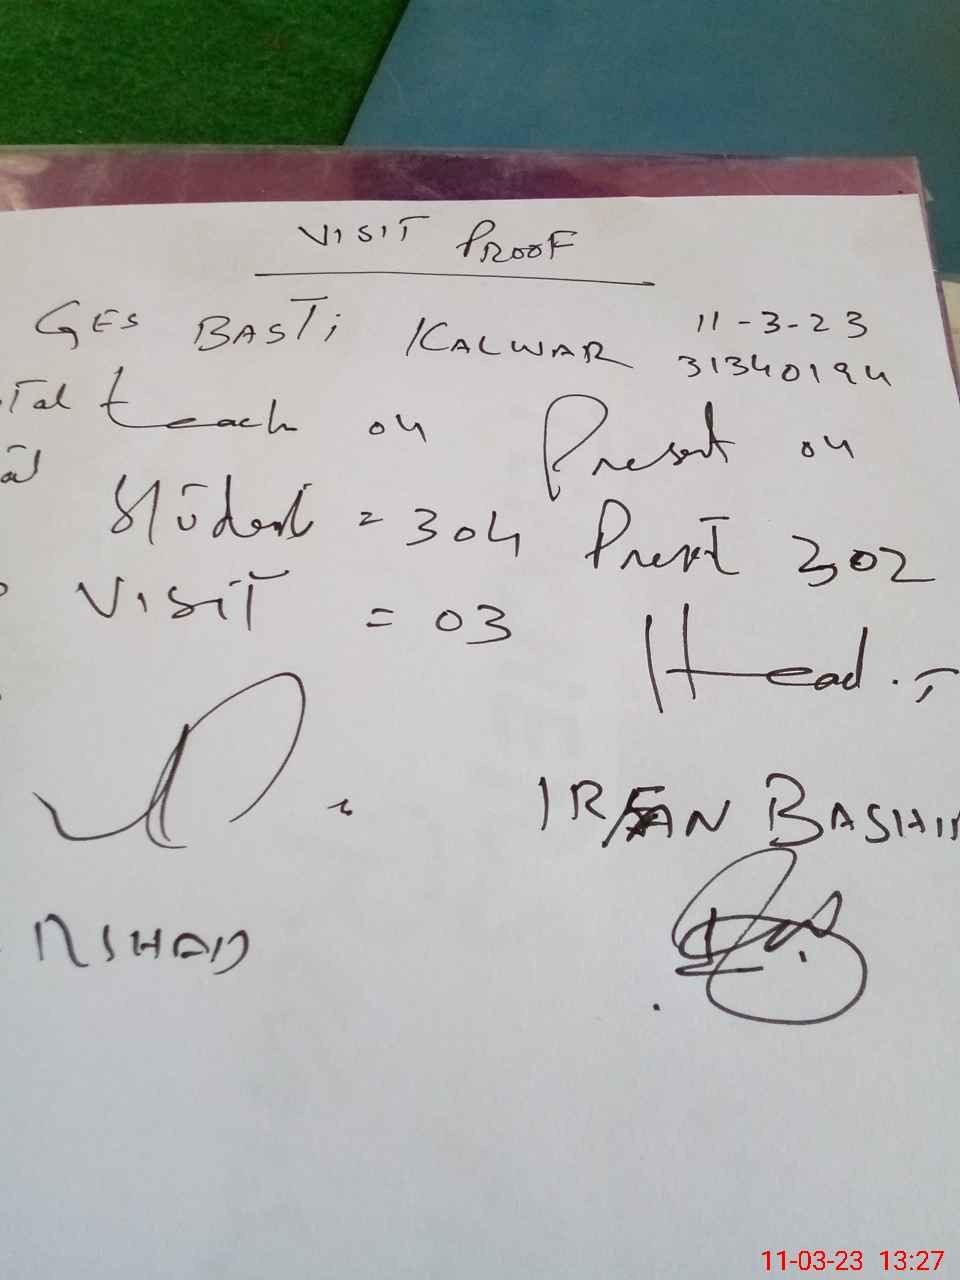 VISIT PROOF
GES BASTi KALWAR 11-3-23
31340194
Tal teach 04 Present 04
Student = 304 Present 302
VISIT = 03
Head . T
IRFAN BASHI
RSHAD
11-03-23 13:27